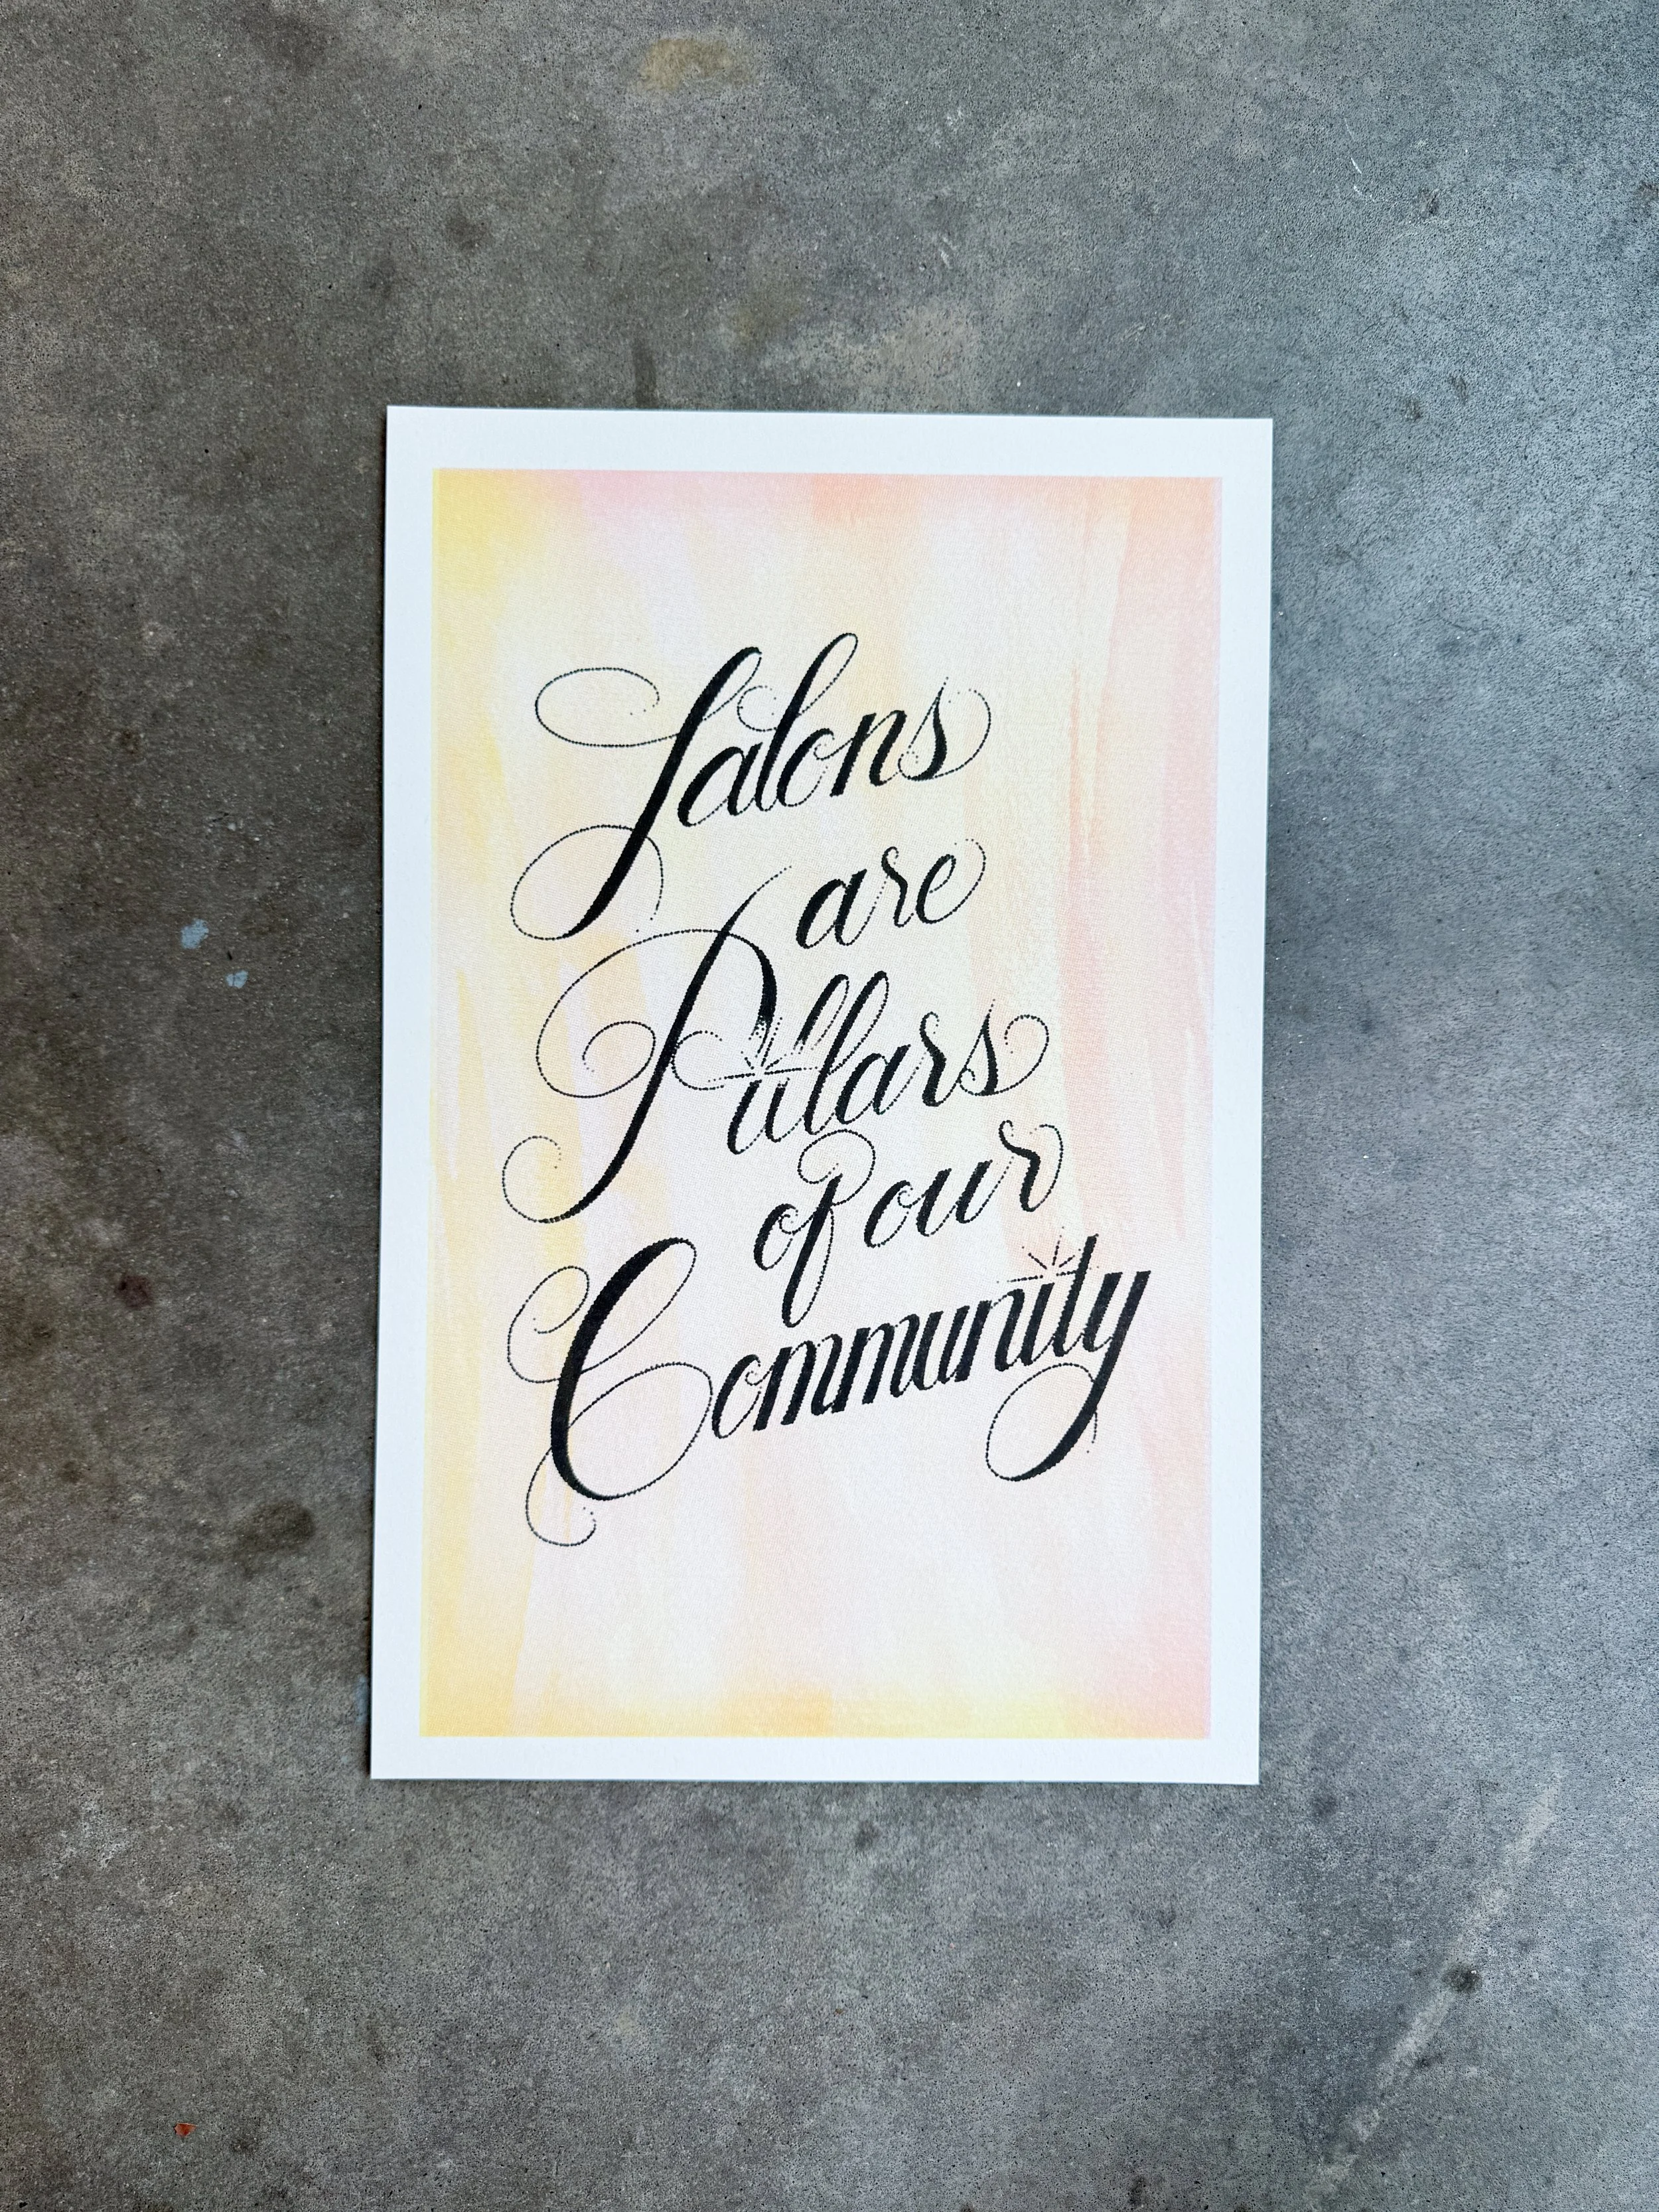 Salons
are
Pillars
of our
Community